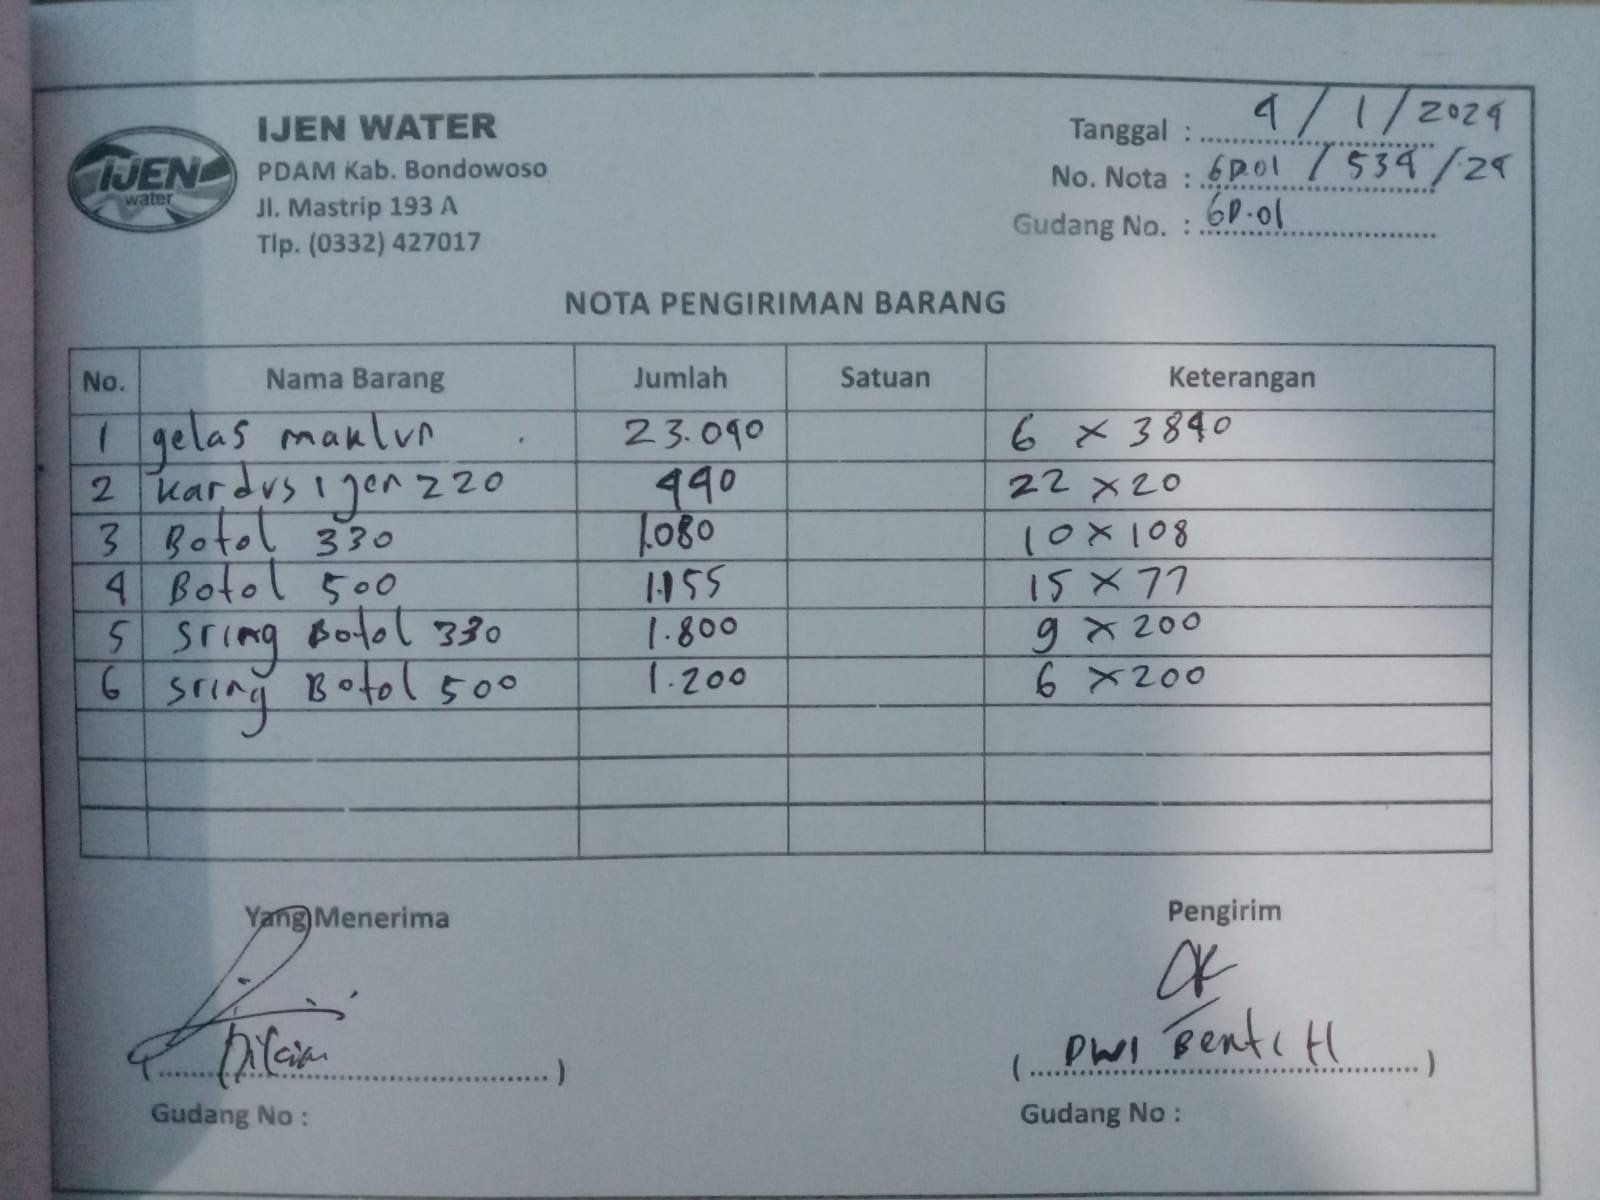 IJEN WATER
PDAM Kab. Bondowoso
Jl. Mastrip 193 A
Tlp. (0332) 427017
IJEN
water
Tanggal : 4 / 1 / 2024
No. Nota : GD.01 / 534 / 24
Gudang No. : GD.01
NOTA PENGIRIMAN BARANG
No. Nama Barang Jumlah Satuan Keterangan
1 gelas maklun 23.040 6 x 3840
2 kardus ijen 220 440 22 x 20
3 Botol 330 1.080 10 x 108
4 Botol 500 1.155 15 x 77
5 sring Botol 330 1.800 9 x 200
6 sring Botol 500 1.200 6 x 200
Yang Menerima Pengirim
( ) ( DWI H )
Gudang No : Gudang No :